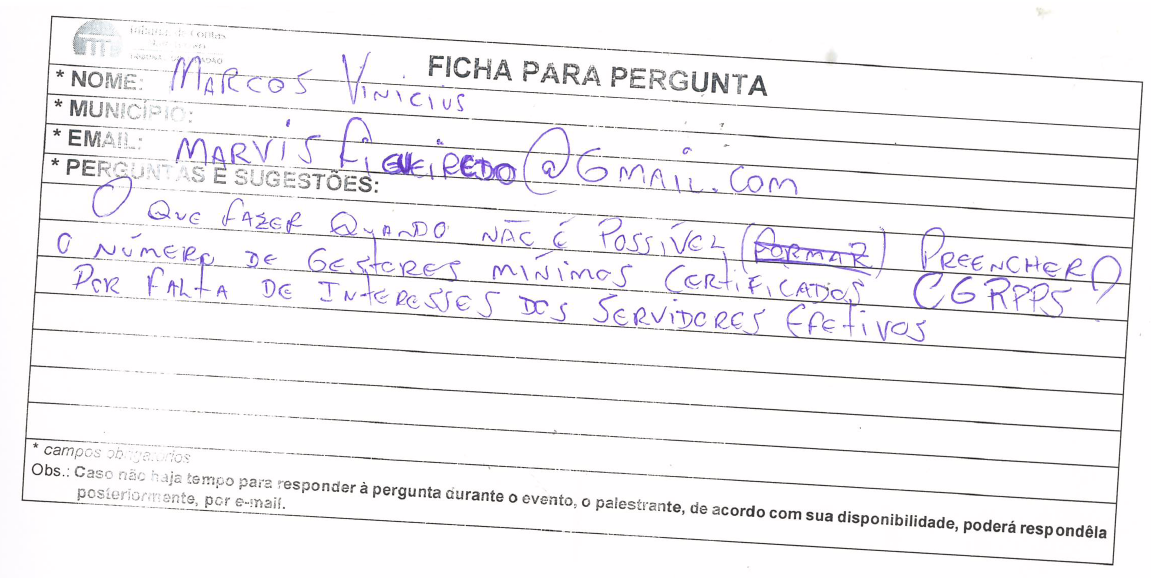 Tribunal de Contas
FICHA PARA PERGUNTA
* NOME: MARCOS VINICIUS
* MUNICÍPIO:
* EMAIL: MARVISFIGUEIREDO@GMAIL.COM
* PERGUNTAS E SUGESTÕES:
O QUE FAZER QUANDO NÃO É POSSÍVEL (FORMAR) PREENCHER
O NÚMERO DE GESTORES MÍNIMOS CERTIFICADOS CGRPPS
POR FALTA DE INTERESSES DOS SERVIDORES EFETIVOS
* campos obrigatórios
Obs.: Caso não haja tempo para responder à pergunta durante o evento, o palestrante, de acordo com sua disponibilidade, poderá respondêla
posteriormente, por e-mail.